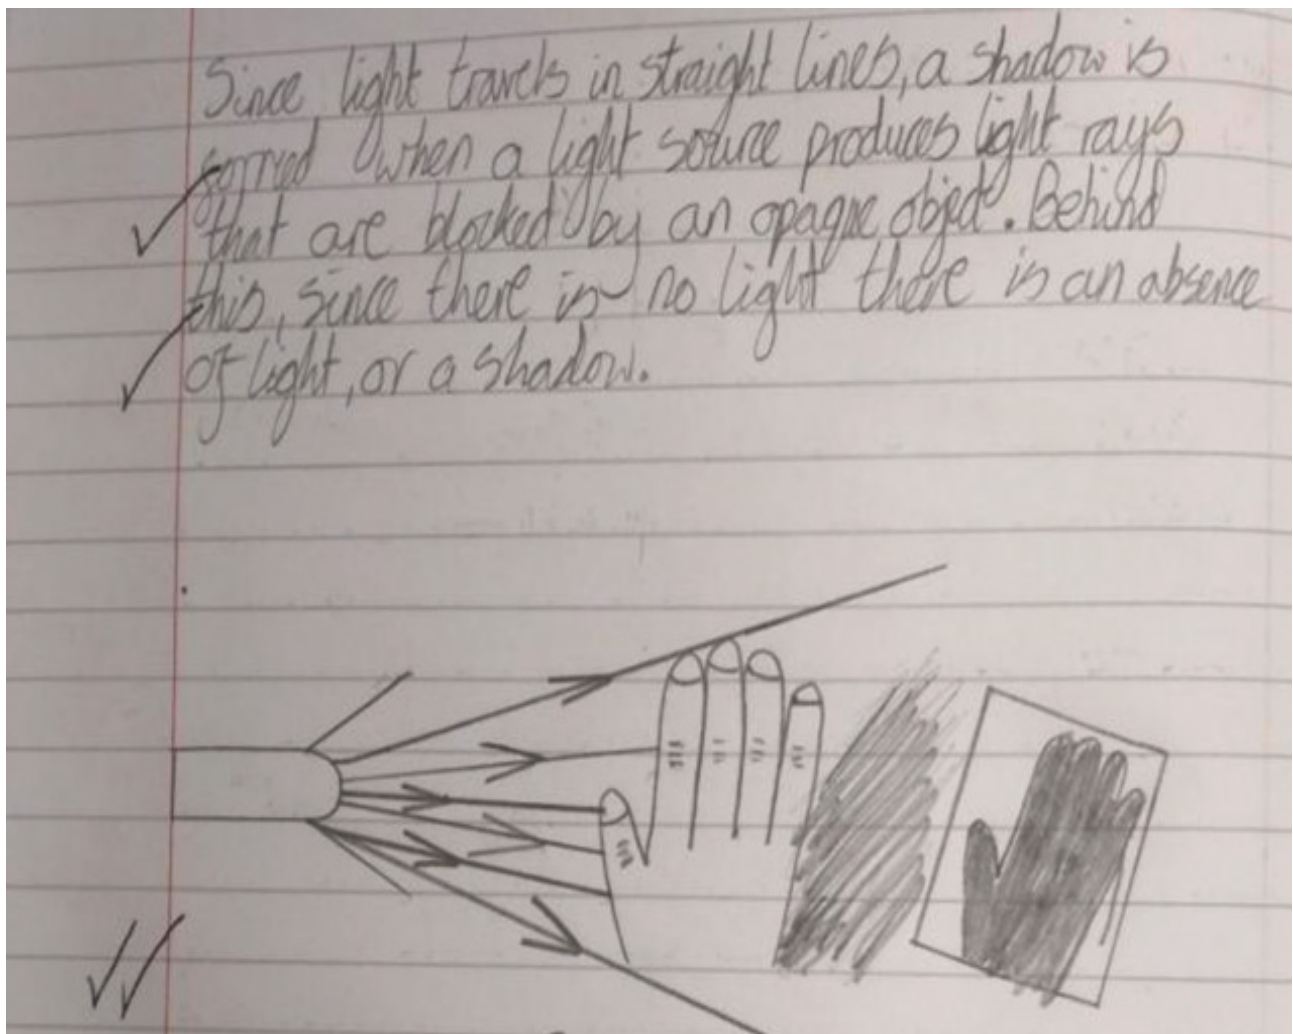 Since light travels in straight lines, a shadow is
formed when a light source produces light rays
that are blocked by an opaque object. Behind
this, since there is no light there is an absence
of light, or a shadow.